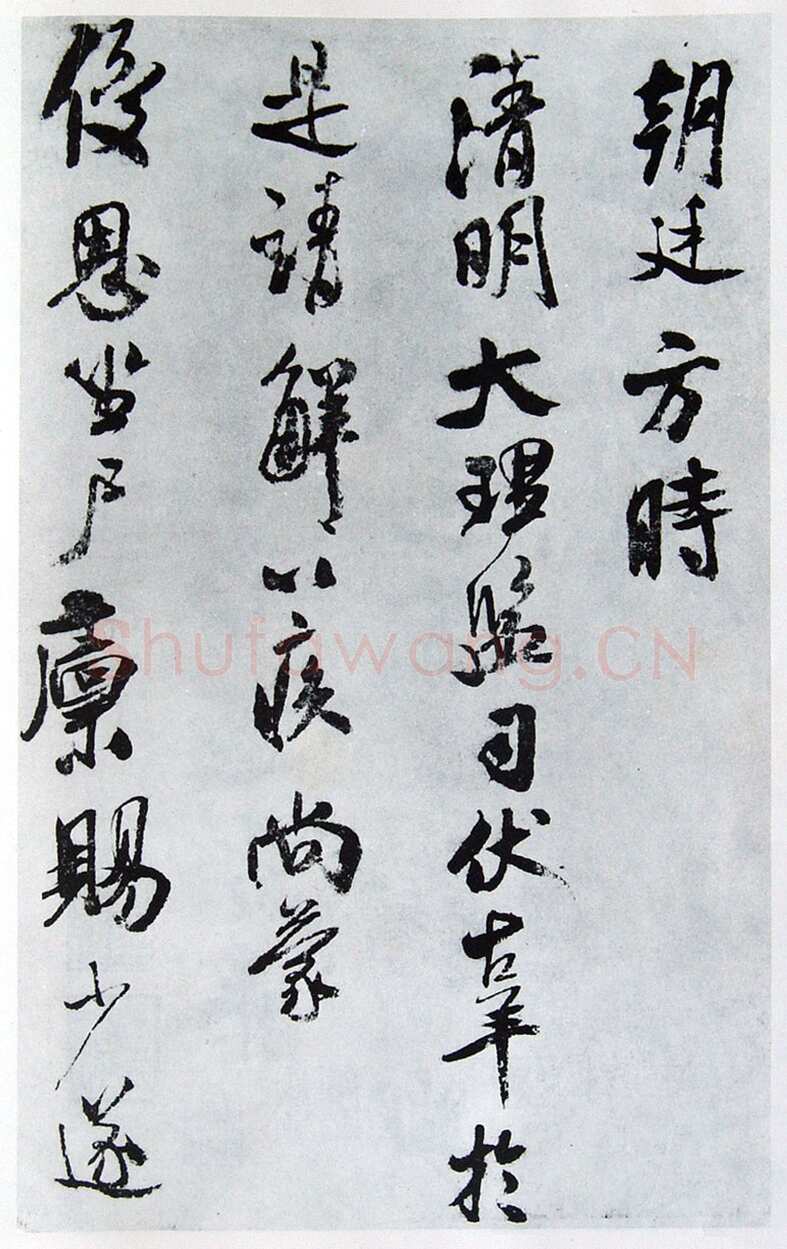 朝廷方時
清明大理監司伏辜於
是請解以疾尚蒙
優恩坐尸廩賜少遂
Shufawang.CN